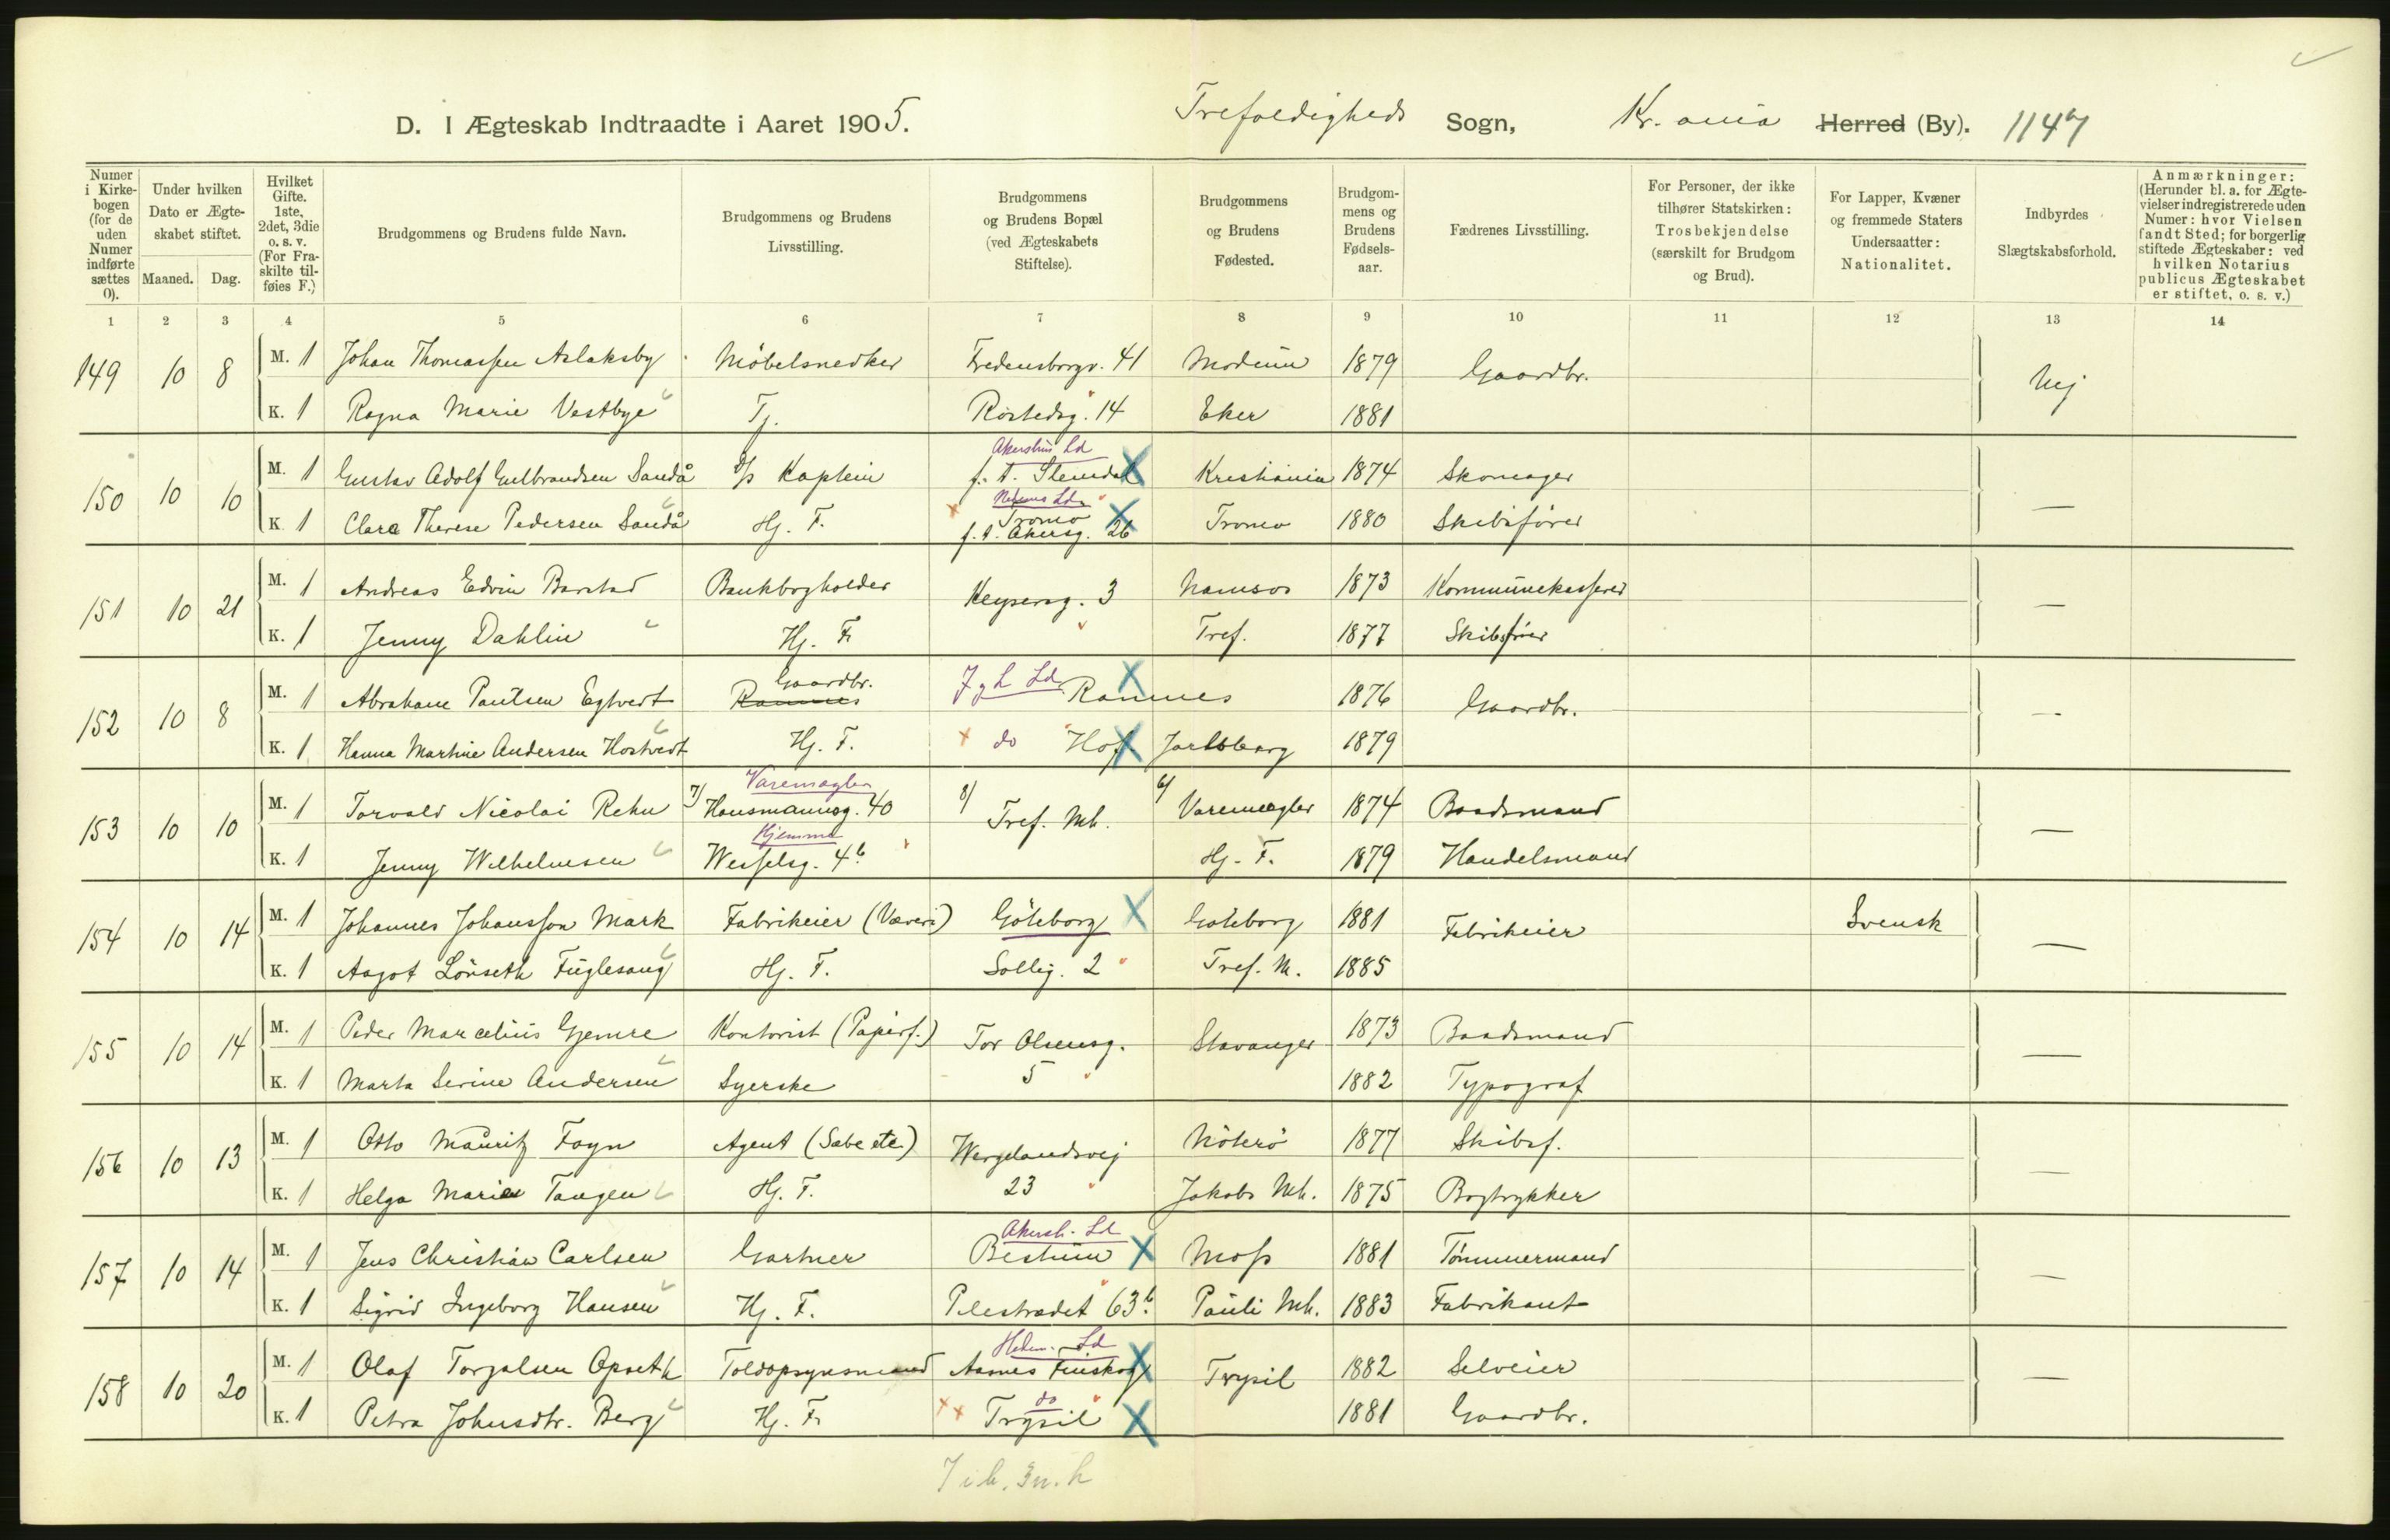 D. I Ægteskab Indtraadte i Aaret 1905. Trefoldigheds Sogn, Kr.ania Herred (By). 1147
Numer i Kirkebogen (for de uden Numer indførte sættes 0). Under hvilken Dato er Ægteskabet stiftet. Maaned. Dag. Hvilket Gifte. 1ste, 2det, 3die o. s. v. (For Fraskilte tilføies F.) Brudgommens og Brudens fulde Navn. Brudgommens og Brudens Livsstilling. Brudgommens og Brudens Bopæl (ved Ægteskabets Stiftelse). Brudgommens og Brudens Fødested. Brudgommens og Brudens Fødselsaar. Fædrenes Livsstilling. For Personer, der ikke tilhører Statskirken: Trosbekjendelse (særskilt for Brudgom og Brud). For Lapper, Kvæner og fremmede Staters Undersaatter: Nationalitet. Indbyrdes Slægtskabsforhold. Anmærkninger: (Herunder bl. a. for Ægtevielser indregistrerede uden Numer: hvor Vielsen fandt Sted; for borgerlig stiftede Ægteskaber: ved hvilken Notarius publicus Ægteskabet er stiftet, o. s. v.)
1 2 3 4 5 6 7 8 9 10 11 12 13 14
149 10 8 M. 1 Johan Thomassen Aslaksby Møbelsnedker Fredensborgv. 41 Modum 1879 Gaardbr. Nej
K. 1 Ragna Marie Vestbye Tj. Rostedsg. 14 Eker 1881
Akershus Ld
150 10 10 M. 1 Gustav Adolf Gulbrandsen Sandå D/s Kaptein f. t. Slemdal Kristiania 1874 Skomager —
Nedenes Ld.
K. 1 Clara Therese Pedersen Sandå Hj. F. Tromø f. t. Akersg. 26 Tromø 1880 Skibsfører
151 10 21 M. 1 Andreas Edvin Barstad Bankbogholder Keysersg. 3 Namsos 1873 Kommunekasserer —
K. 1 Jenny Dahlin Hj. F. Tref. 1877 Skibsfører
152 10 8 M. 1 Abraham Paulsen Egtvedt Ramnes Gaardbr. J g L Ld Ramnes 1876 Gaardbr. —
K. 1 Hanna Martine Andersen Hostvedt Hj. F. do Hof Jarlsberg 1879
Varemægler
153 10 10 M. 1 Torvald Nicolai Rehn 7/ Hausmannsg. 40 8/ Tref. Mh. 6/ Varemægler 1874 Baadsmand —
Hjemme
K. 1 Jenny Wilhelmsen Wesselsg. 4b Hj. F. 1879 Handelsmand
154 10 14 M. 1 Johannes Johansson Mark Fabrikeier (Væveri) Göteborg Göteborg 1881 Fabrikeier Svensk —
K. 1 Aagot Lønseth Fuglesang Hj. F. Sollig. 2 Tref. M. 1885
155 10 14 M. 1 Peder Marcelius Gjemre Kontorist (Papirf.) Tor Olsensg. Stavanger 1873 Baadsmand —
K. 1 Marta Serine Andersen Syerske 5 1882 Typograf
156 10 13 M. 1 Otto Mauritz Foyn Agent (Sæbe etc) Wergelandsvej Nøterø 1877 Skibsf. —
K. 1 Helga Marie Tangen Hj. F. 23 Jakobs Mh. 1875 Bogtrykker
Akersh. Ld
157 10 14 M. 1 Jens Christian Carlsen Gartner Bestum Moss 1881 Tømmermand —
K. 1 Sigrid Ingeborg Hansen Hj. F. Pilestrædet 63b Pauli Mh. 1883 Fabrikant
Hedem. Ld
158 10 20 M. 1 Olaf Torgalsen Opseth Toldopsynsmand Aasnes Finskog Trysil 1882 Selveier —
do
K. 1 Petra Johnsdtr. Berg Hj. F. Trysil 1881 Gaardbr.
7 i b. 3 u. h